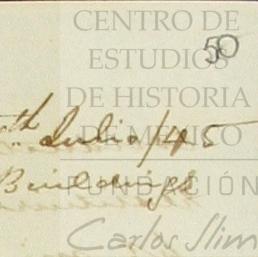 CENTRO DE
50
ESTUDIOS
DE HISTORIA
DE MÉXICO
th Julio/45
FUNDACIÓN
Buildings
Carlos Slim